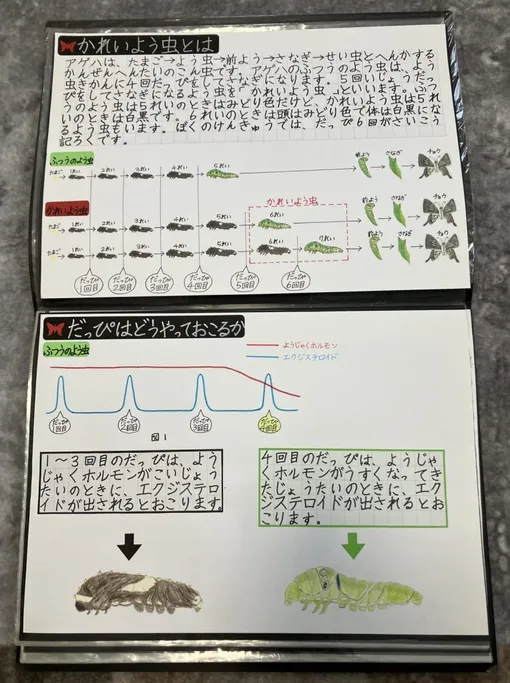 かれいよう虫とは
アゲハは、たまご→よう虫→前よう→さなぎ→せい虫とへんかする
かんぜんへんたいのこん虫です。アゲハのふつうのよう虫は、よう
虫きかんに4回だっぴをしてさなぎになります。5回いじょうだっ
ぴをしてさなぎになるよう虫を「かれいよう虫」といいます。ふつ
うのよう虫は5れいのときはみどり色だけど、かれいよう虫は5れ
いのときは白黒です。6れいのときは頭はみどり色で体は白黒にな
るよう虫もいます。ぼくのけんきゅうでは、だっぴ6回がさいこう
記ろくです。
ふつうのよう虫
たまご 1れい 2れい 3れい 4れい 5れい 前よう さなぎ チョウ
かれいよう虫
かれいよう虫
たまご 1れい 2れい 3れい 4れい 5れい 6れい 前よう さなぎ チョウ
たまご 1れい 2れい 3れい 4れい 5れい 6れい 7れい 前よう さなぎ チョウ
だっぴ1回目 だっぴ2回目 だっぴ3回目 だっぴ4回目 だっぴ5回目 だっぴ6回目
だっぴはどうやっておこるか
ふつうのよう虫
ようじゃくホルモン
エクジステロイド
だっぴ1回目 だっぴ2回目 だっぴ3回目 だっぴ4回目
図1
1〜3回目のだっぴは、よう
じゃくホルモンがこいじょう
たいのときに、エクジステロ
イドが出されるとおこります。
4回目のだっぴは、ようじゃ
くホルモンがうすくなってき
たじょうたいのときに、エク
ジステロイドが出されるとお
こります。